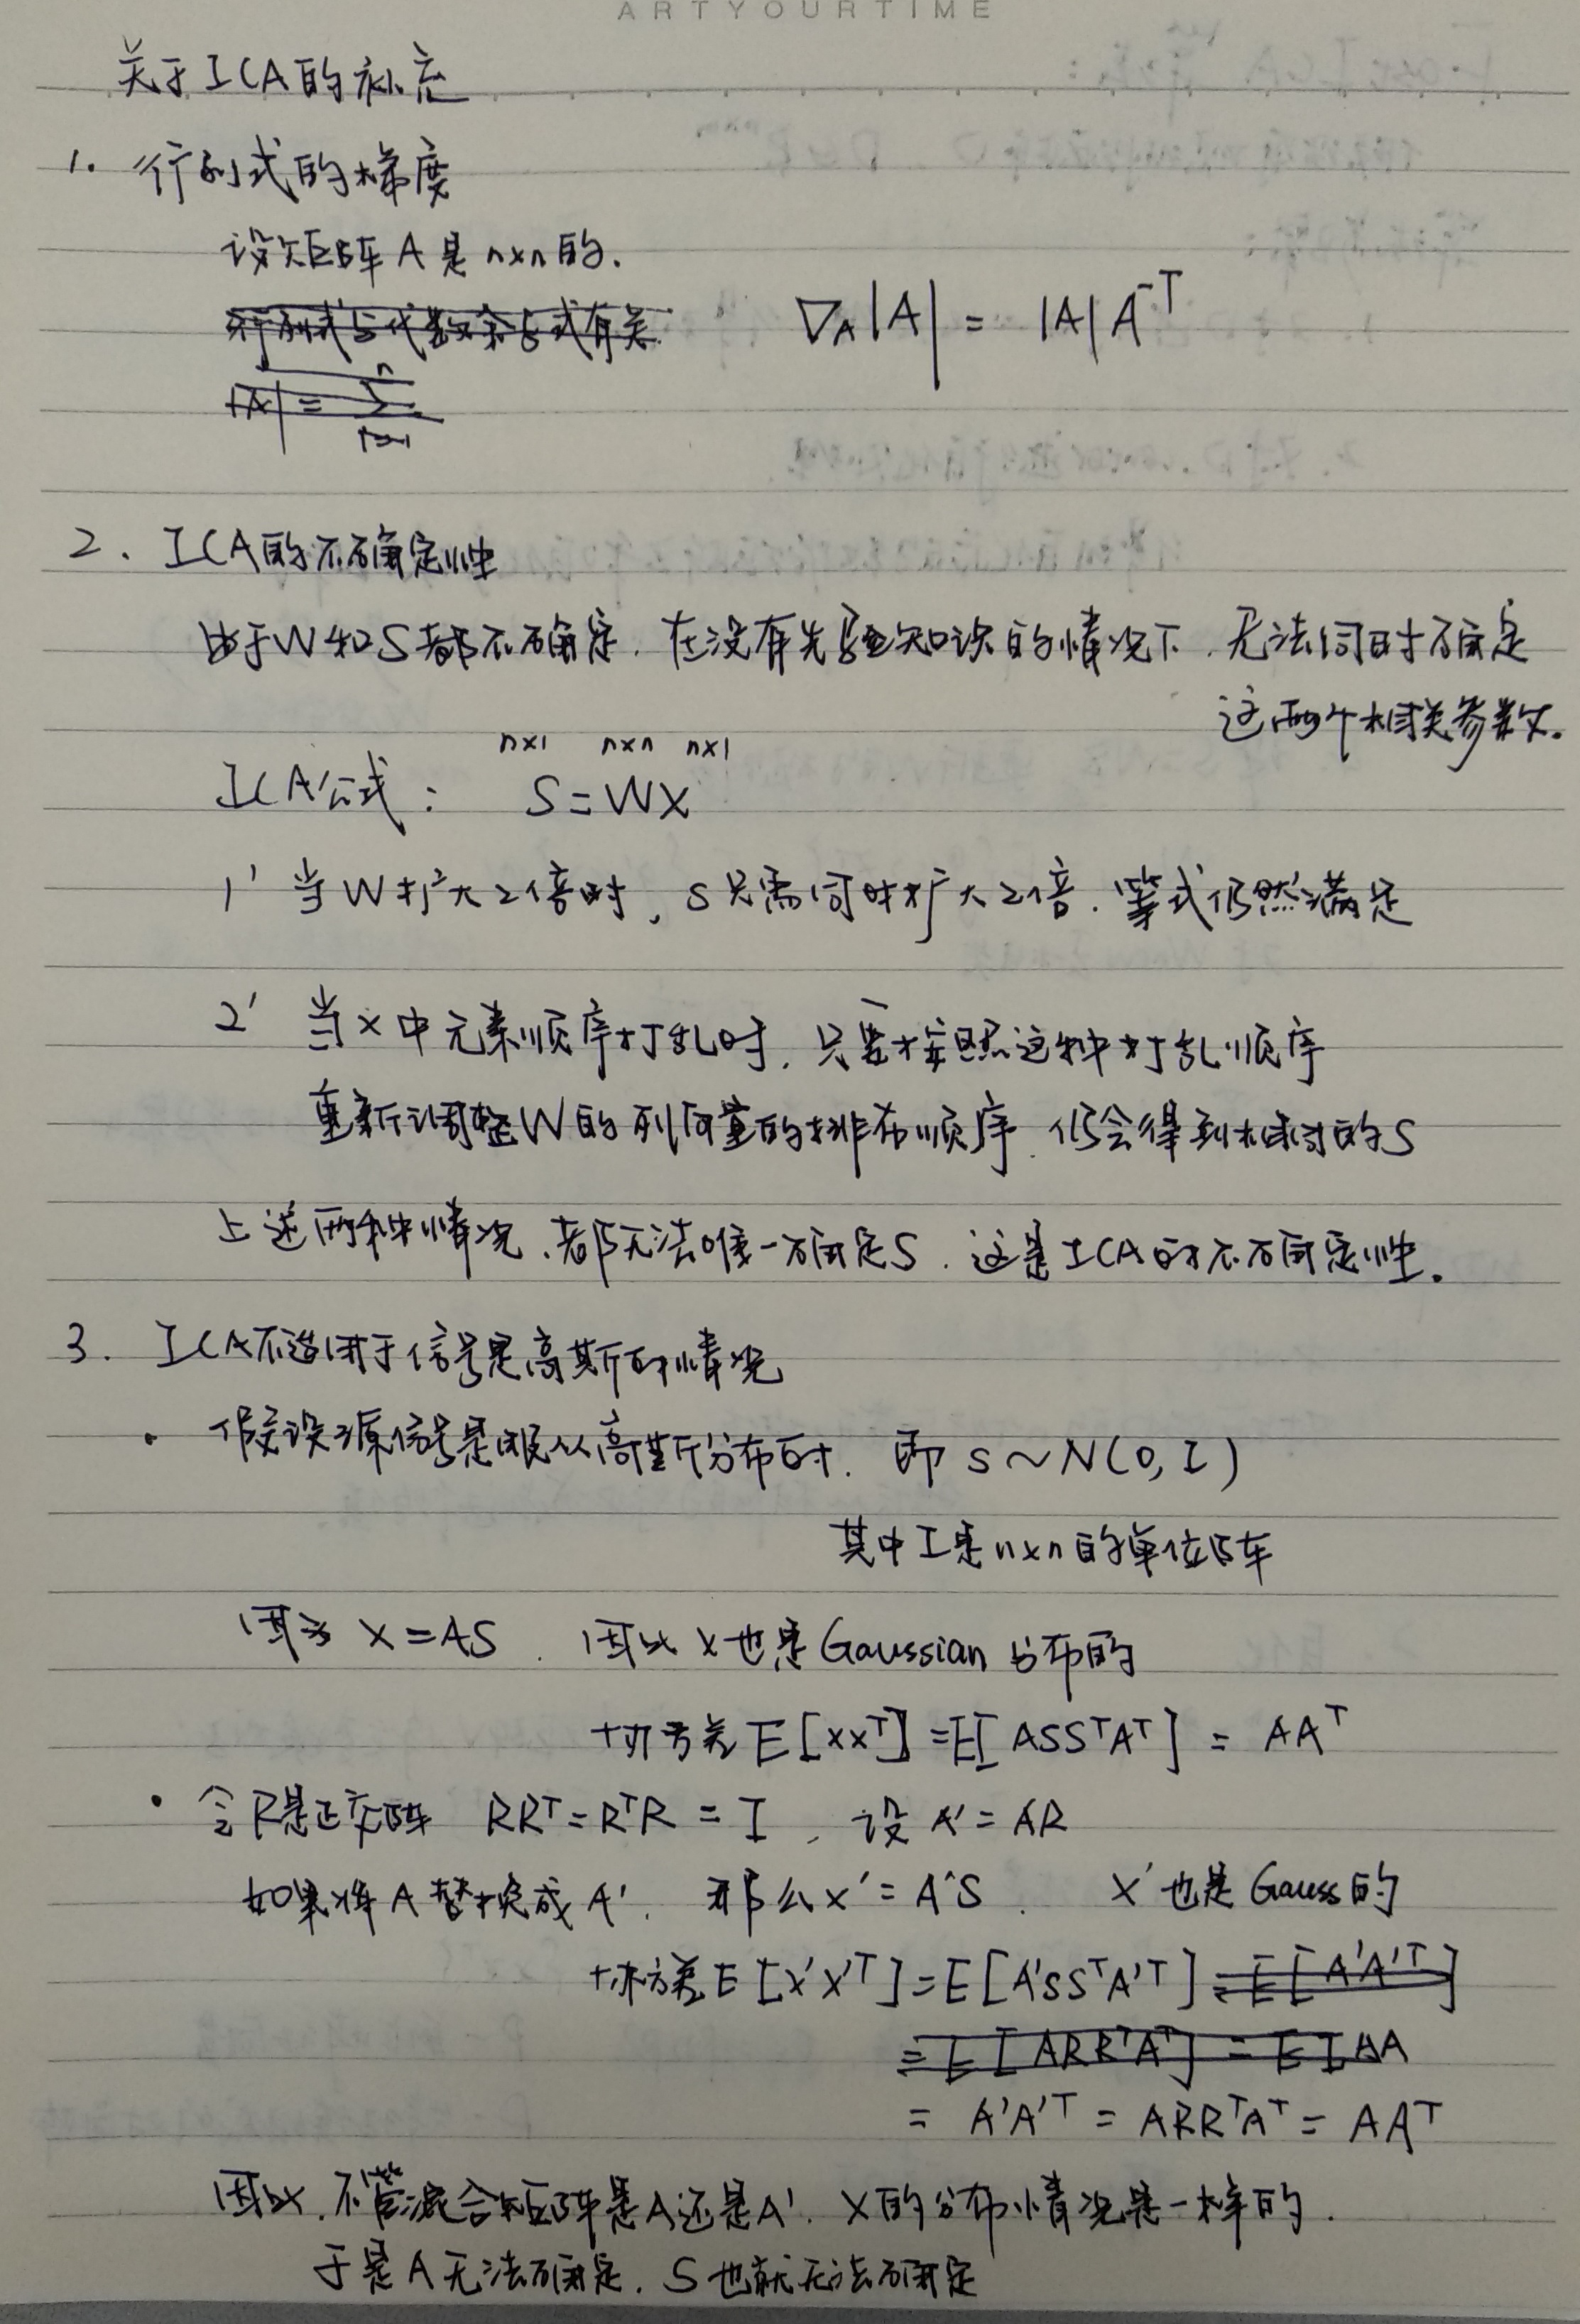 ARTYOURTIME
关于ICA的补充
1. 行列式的梯度
设矩阵A是n×n的.
行列式与代数余子式有关.
∇_A|A| = |A| A^{-T}
|A| = Σ_{i=1}^{n}
2. ICA的不确定性
由于W和S都不确定. 在没有先验知识的情况下. 无法同时确定
这两个相关参数.
n×1 n×n n×1
ICA公式: S=WX
1' 当W扩大2倍时, S只需同时扩大2倍. 等式仍然满足
2' 当X中元素顺序打乱时. 只要按照这种打乱顺序
重新调整W的列向量的排布顺序. 仍会得到相同的S
上述两种情况, 都无法唯一确定S. 这是ICA的不确定性.
3. ICA不适用于信号是高斯的情况
· 假设源信号是服从高斯分布的. 即 S~N(0, I)
其中I是n×n的单位阵
因为 X=AS. 因此X也是Gaussian分布的
协方差E[XX^T]=E[ASS^TA^T] = AA^T
· 令R是正交阵 RR^T=R^TR=I, 设A'=AR
如果将A替换成A'. 那么X'=A'S. X'也是Gauss的
协方差E[X'X'^T]=E[A'SS^TA'^T]=E[A'A'^T]
=E[ARR^TA^T] = E[AA
= A'A'^T = ARR^TA^T = AA^T
因此. 不管混合矩阵是A还是A'. X的分布情况是一样的.
于是A无法确定. S也就无法确定